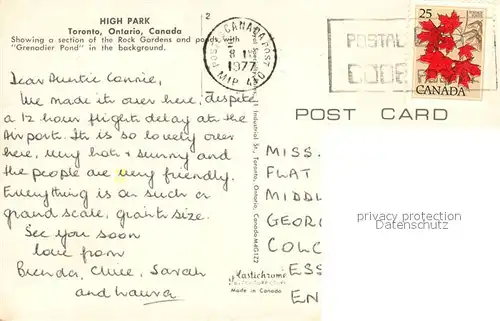 HIGH PARK
Toronto, Ontario, Canada
Showing a section of the Rock Gardens and ponds, with
"Grenadier Pond" in the background.
Dear Auntie Connie,
We made it over here, despite
a 12 hour flight delay at the
Airport. It is so lovely over
here, very hot & sunny and
the people are very friendly.
Everything is on such a
grand scale, giant size.
See you soon
love from
Brenda, Clive, Sarah
and Laura
2
CANADA POST
1977
POSTAL
CODE
25
CANADA
POST CARD
Industrial St., Toronto, Ontario, Canada M4G1Z2
Plastichrome
Made in Canada
MISS.
FLAT
MIDDL
GEORG
COLC
ESS
EN
privacy protection
Datenschutz